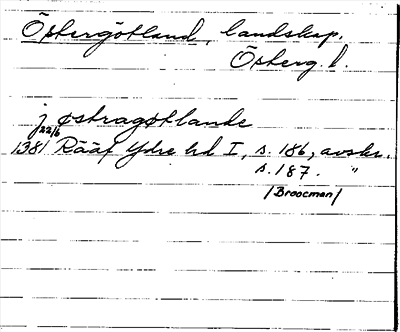 Östergötland, landskap.
Österg. l.
j østragøtlande
1381 22/6 Rääf Ydre hd I, s. 186, avskr.
s. 187. "
/Broocman/